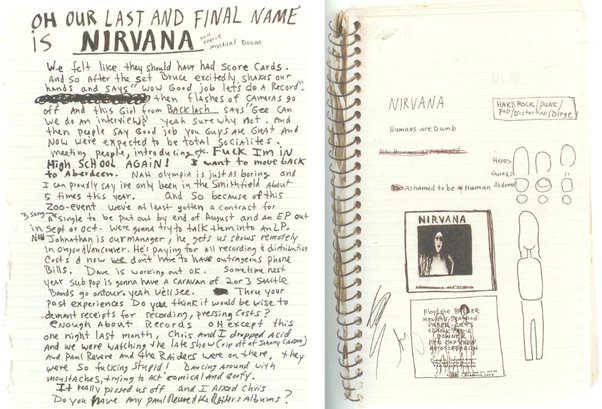 OH OUR LAST AND FINAL NAME
is NIRVANA ooh eerie mystical Doom
We felt like they should have had Score Cards.
And so after the set Bruce excitedly shakes our
hands and says "WOW Good job lets do A Record".
then flashes of CAMERAS go
off And this Girl from BackLash says "Gee CAN
we do an interview"? yeah sure why not. And
then people say Good job you Guys are Great And
NOW were expected to be total socialites.
meeting people, introducing etc. FUCK IM IN
HIGH SCHOOL AGAIN! I want to move back
to Aberdeen. NAH olympia is just as boring and
I can proudly say ive only been in the Smithfield About
5 times this year. And so because of this
ZOO-event weve At least gotten a contract for
3 song A single to be put out by end of August and an EP out
in Sept or Oct. were gonna try to talk them into an LP.
Now Johnathan is our manager, he gets us shows remotely
in Oregon & Vancouver. He's paying for all recording & distribution
Costs & now we dont have to have outrageous phone
Bills. Dave is working out OK. Sometime next
year Sub pop is gonna have A CARAVAN of 2 or 3 Seattle
Bands go on tour. yeah we'll see. Thru your
past experiences Do you think it would be wise to
demand receipts for recording, pressing Costs?
enough About Records OH Except this
one night last month, Chris and I dropped acid
And we were watching the late show (rip off of Johnny Carson)
and Paul Revere and the Raiders were on there. they
were so fucking stupid! Dancing around with
moustaches, trying to Act comical and Goofy.
It really pissed us off and I Asked Chris
Do you have Any paul Revere & the Raiders Albums?
NIRVANA
HARD ROCK/PUNK/
POP/Distortion/Dirge
Humans are Dumb
Ashamed to be A Human
Head
thorax
Abdomen
NIRVANA
Floyd the BARBER
PAPER CUTS
SPANK THRU
DOWNER
PEN CAP CHEW
AERO ZEPPELIN